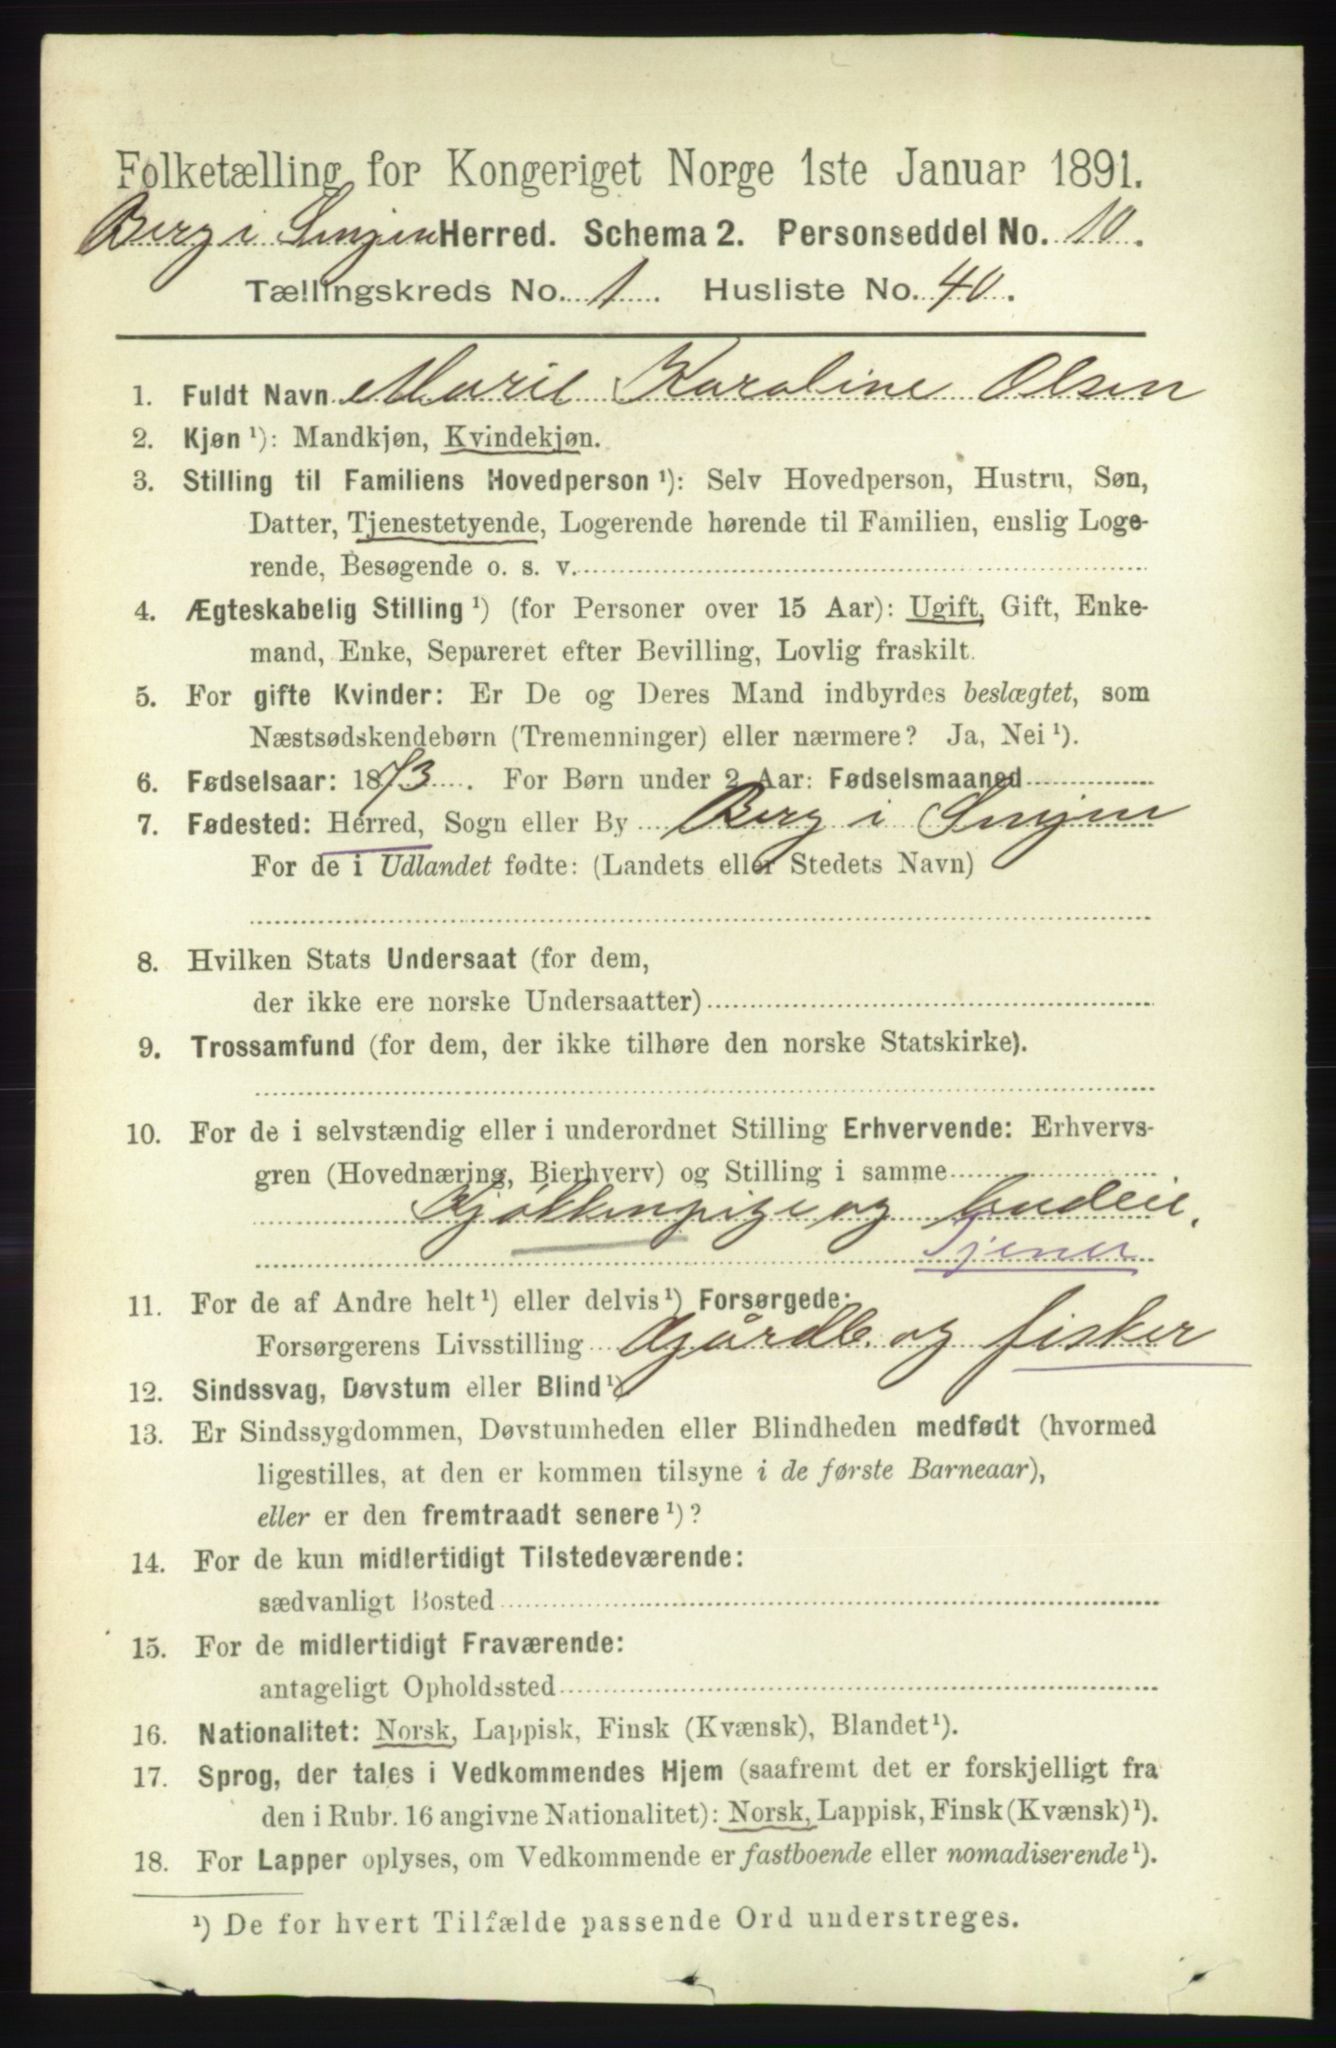 Folketælling for Kongeriget Norge 1ste Januar 1891.
Berg i Senjen Herred. Schema 2. Personseddel No. 10.
Tællingskreds No. 1. Husliste No. 40.
1. Fuldt Navn Marie Karoline Olsen
2. Kjøn ¹): Mandkjøn, Kvindekjøn.
3. Stilling til Familiens Hovedperson ¹): Selv Hovedperson, Hustru, Søn,
Datter, Tjenestetyende, Logerende hørende til Familien, enslig Loge-
rende, Besøgende o. s. v.
4. Ægteskabelig Stilling ¹) (for Personer over 15 Aar): Ugift, Gift, Enke-
mand, Enke, Separeret efter Bevilling, Lovlig fraskilt.
5. For gifte Kvinder: Er De og Deres Mand indbyrdes beslægtet, som
Næstsødskendebørn (Tremenninger) eller nærmere? Ja, Nei ¹).
6. Fødselsaar: 1873. For Børn under 2 Aar: Fødselsmaaned
7. Fødested: Herred, Sogn eller By Berg i Senjen
For de i Udlandet fødte: (Landets eller Stedets Navn)
8. Hvilken Stats Undersaat (for dem,
der ikke ere norske Undersaatter)
9. Trossamfund (for dem, der ikke tilhøre den norske Statskirke).
10. For de i selvstændig eller i underordnet Stilling Erhvervende: Erhvervs-
gren (Hovednæring, Bierhverv) og Stilling i samme
Kjøkkenpige og budeie.
Tjener
11. For de af Andre helt ¹) eller delvis ¹) Forsørgede:
Forsørgerens Livsstilling Gjårdb. og fisker
12. Sindssvag, Døvstum eller Blind ¹)
13. Er Sindssygdommen, Døvstumheden eller Blindheden medfødt (hvormed
ligestilles, at den er kommen tilsyne i de første Barneaar),
eller er den fremtraadt senere ¹)?
14. For de kun midlertidigt Tilstedeværende:
sædvanligt Bosted
15. For de midlertidigt Fraværende:
antageligt Opholdssted
16. Nationalitet: Norsk, Lappisk, Finsk (Kvænsk), Blandet ¹).
17. Sprog, der tales i Vedkommendes Hjem (saafremt det er forskjelligt fra
den i Rubr. 16 angivne Nationalitet): Norsk, Lappisk, Finsk (Kvænsk) ¹).
18. For Lapper oplyses, om Vedkommende er fastboende eller nomadiserende ¹).
¹) De for hvert Tilfælde passende Ord understreges.